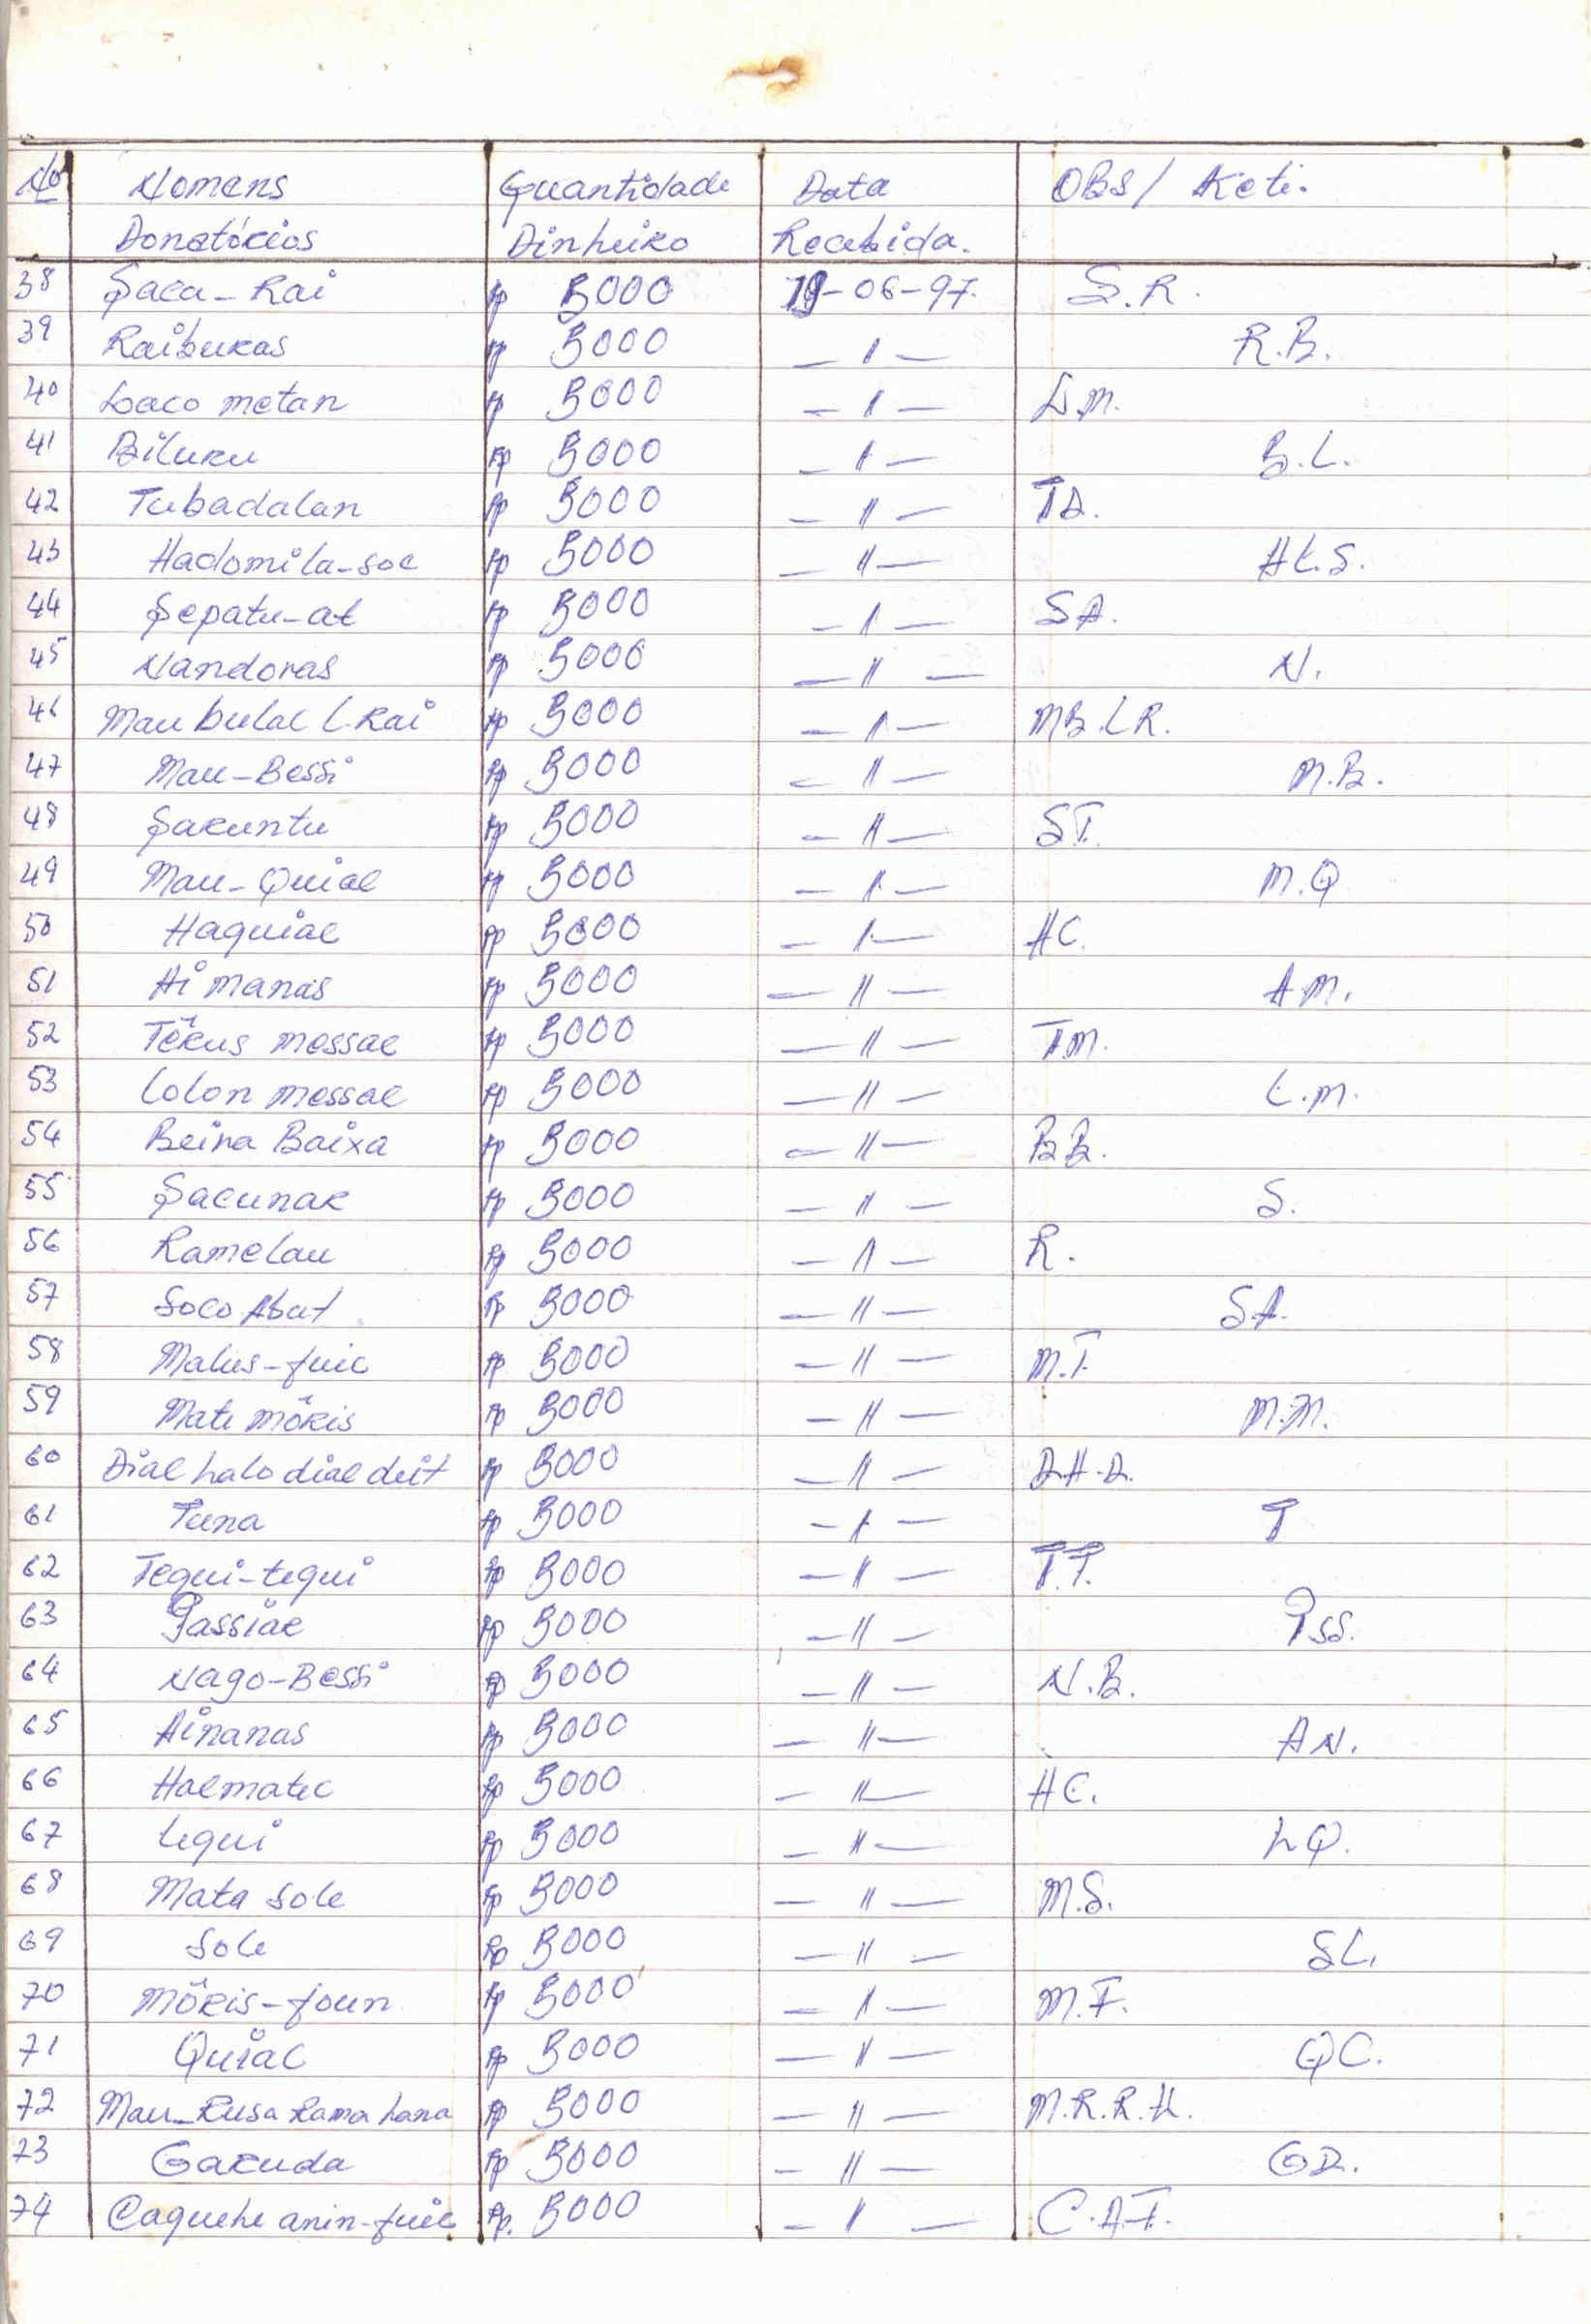 No Nomens Quantidade Data OBS / Keti.
Donatórios Dinheiro Recebida.
38 Saca-Rai Rp 5000 19-06-97. S.R.
39 Raibukas Rp 5000 — " — R.B.
40 Laco metan Rp 5000 — " — L.M.
41 Biluku Rp 5000 — " — B.L.
42 Tubadalan Rp 5000 — " — TD.
43 Hadomi la-soe Rp 5000 — " — HL.S.
44 Sepatu-at Rp 5000 — " — SA.
45 Nandoras Rp 5000 — " — N.
46 Mau bulac L.Rai Rp 5000 — " — MB.LR.
47 Mau-Bessi Rp 5000 — " — M.B.
48 Sakuntu Rp 5000 — " — ST.
49 Mau-Quiac Rp 5000 — " — M.Q
50 Haquiac Rp 5000 — " — HC.
51 Ai manas Rp 5000 — " — AM.
52 Tékus messac Rp 5000 — " — TM.
53 Lolon messac Rp 5000 — " — L.M.
54 Beira Baixa Rp 5000 — " — BB.
55 Sacunar Rp 5000 — " — S.
56 Ramelau Rp 5000 — " — R.
57 Soco Abut Rp 5000 — " — SA.
58 Malus-fuic Rp 5000 — " — M.F.
59 Mate môris Rp 5000 — " — M.M.
60 Diac halo diac deit Rp 5000 — " — D.H.D.
61 Tuna Rp 5000 — " — T
62 Tequi-tequi Rp 5000 — " — T.T.
63 Passiac Rp 5000 — " — Pss.
64 Nago-Bessi Rp 5000 — " — N.B.
65 Ainanas Rp 5000 — " — AN.
66 Halmatec Rp 5000 — " — HC.
67 Lequi Rp 5000 — " — LQ.
68 Mata Sole Rp 5000 — " — M.S.
69 Sole Rp 5000 — " — SL.
70 Môris-foun Rp 5000 — " — M.F.
71 Quiac Rp 5000 — " — QC.
72 Mau-Rusa Rama hana Rp 5000 — " — M.R.R.H.
73 Garuda Rp 5000 — " — GD.
74 Caquehe anin-fuic Rp. 5000 — " — C.A.F.